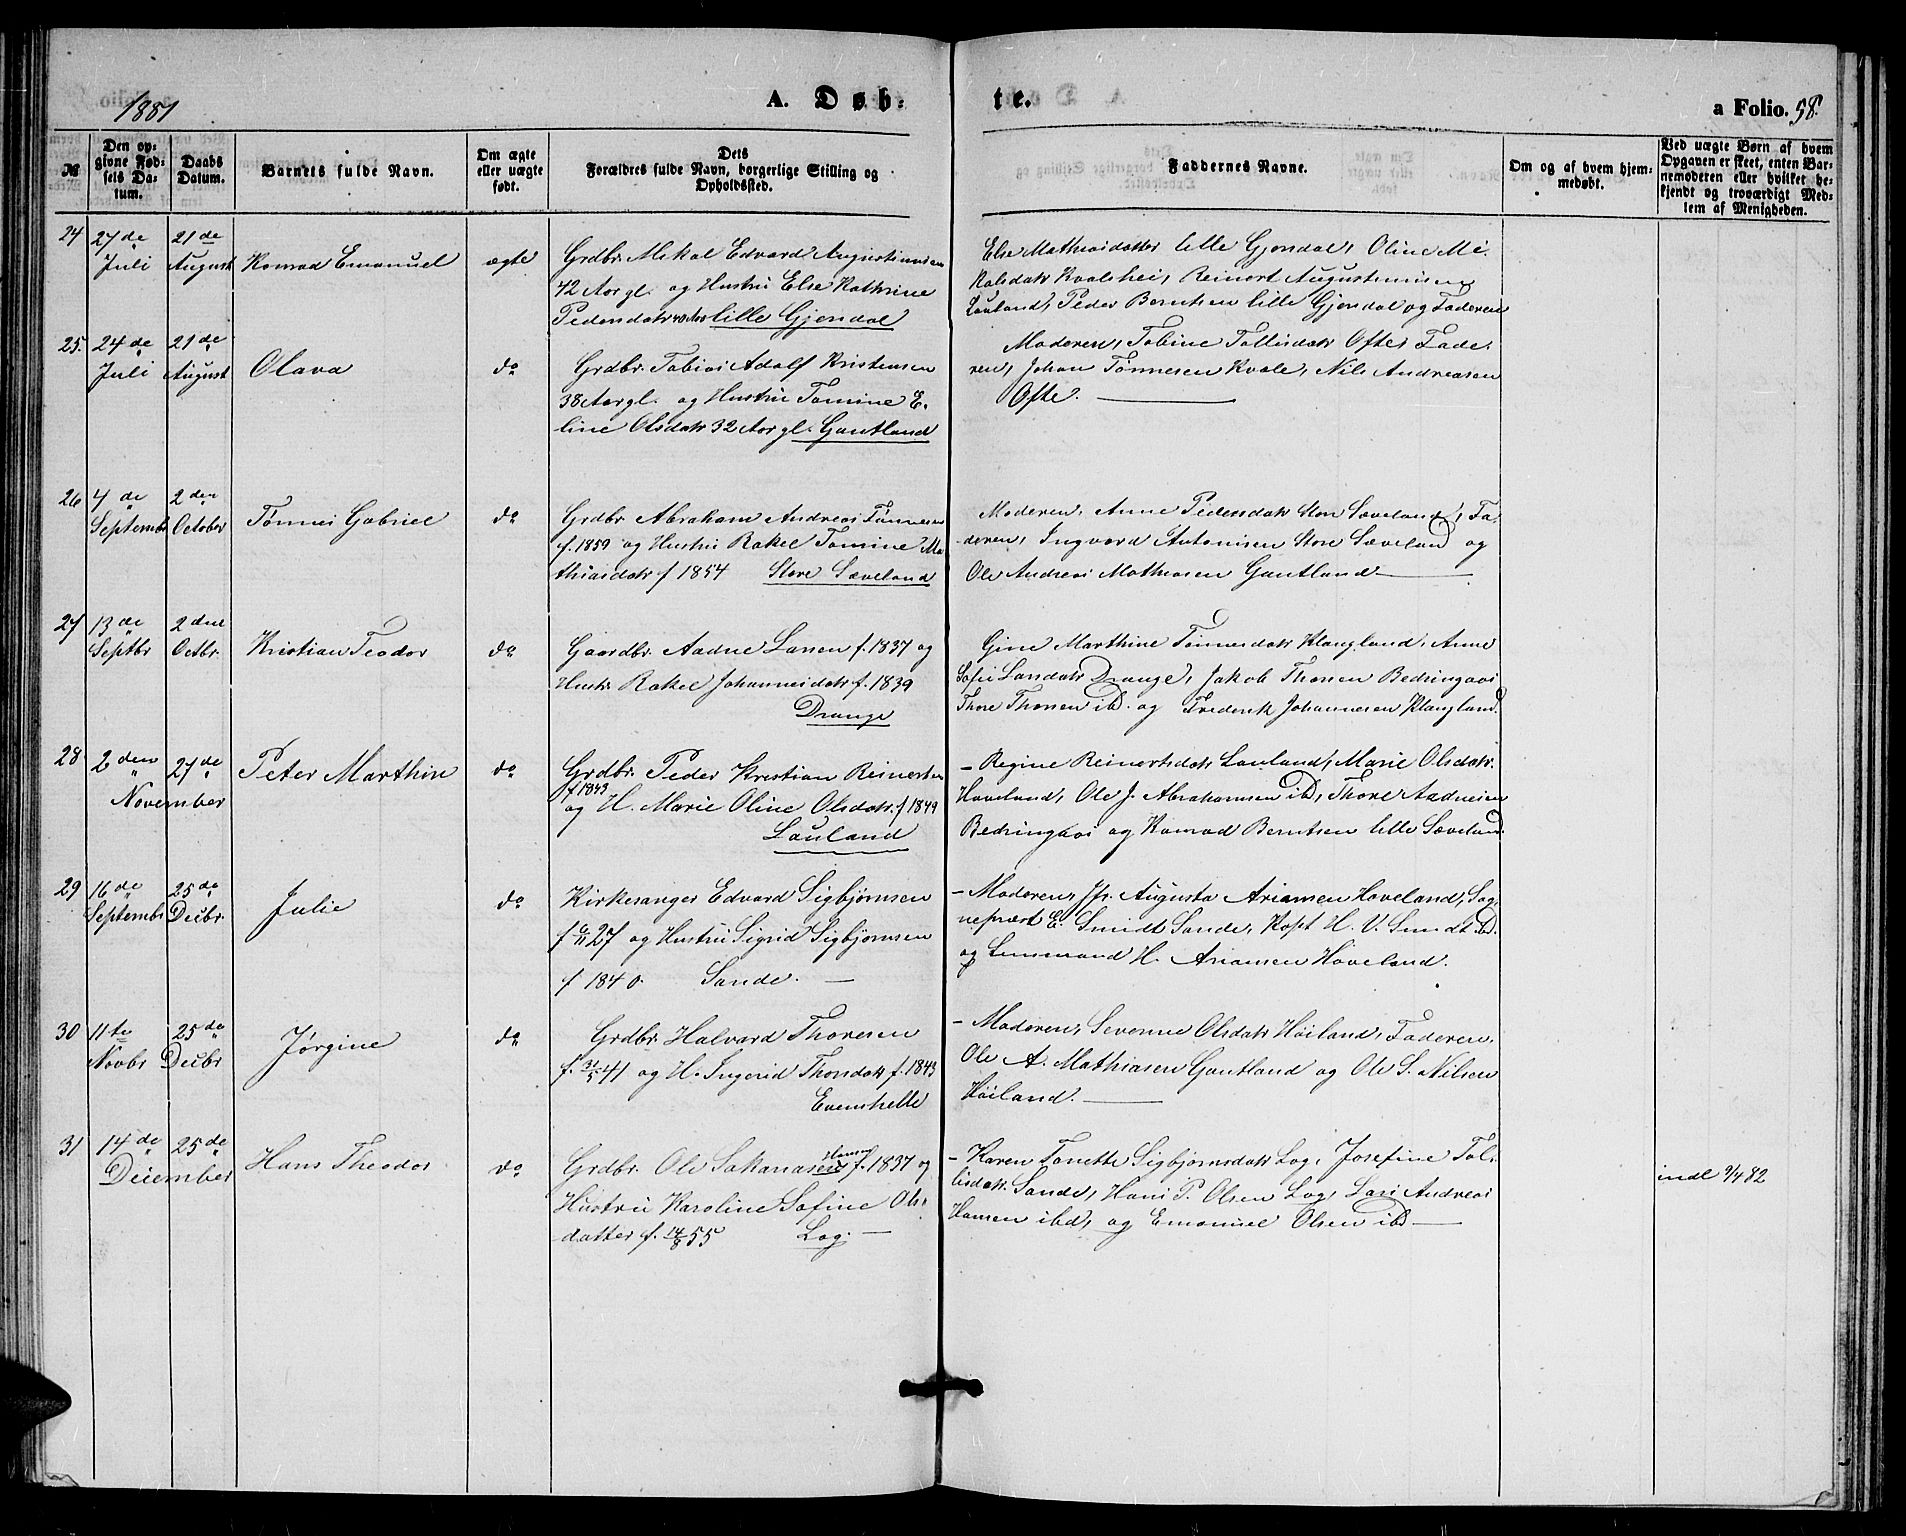 1881
A. Døb-
te.
a Folio. 58.
№
Den op-
givne Fød-
sels Da-
tum.
Daabs
Datum.
Barnets fulde Navn.
Om ægte
eller uægte
født.
Dets
Forældres fulde Navn, borgerlige Stilling og
Opholdssted.
Faddernes Navne.
Om og af hvem hjem-
medøbt.
Ved uægte Børn af hvem
Opgaven er skeet, enten Bar-
nemoderen eller hvilket be-
kjendt og troværdigt Med-
lem af Menigheden.
24 27de Juli 21de August Konrad Emanuel ægte
Grdbr. Mikal Edvard Augustinusen
42 Aar gl. og Hustru Else Kathrine
Pedersdatr 40 Aar Lille Gjendal
Else Mathiasdatter lille Gjendal, Oline Mi-
kalsdatr Kvalshei, Reinert Augustinusen
Lauland, Peder Berntsen lille Gjendal og Faderen
25. 24de Juli 21de August Olava do
Grdbr. Tobias Adolf Kristensen
38 Aar gl. og Hustru Tomine E-
line Olsdatr 32 Aar gl. Gautland
Moderen, Tobine Tollisdatr Ofte, Fade-
ren, Johan Tønnesen Kvale, Nils Andreasen
Ofte.
26 4de Septembr 2den October Tønnes Gabriel do
Grdbr. Abraham Andreas Tønnesen
f. 1859 og Hustru Rakel Tomine Ma-
thiasdatr f 1854 Store Sæveland
Moderen, Anne Pedersdatr Store Sæveland, Fa-
deren, Ingvard Antonisen Store Sæveland og
Ole Andreas Mathiasen Gautland
27 13de Septbr 2den Octbr. Kristian Teodor do
Gaardbr. Aadne Larsen f. 1837 og
Hustr. Rakel Johannesdatr f. 1839
Drange
Gine Marthine Tønnesdatr Klungland, Anne
Sofie Larsdatr Drange, Jakob Thorsen Bedringaas
Thore Thorsen ibd. og Frederik Johannesen Klungland.
28 2den November 27de Peter Marthin do
Grdbr. Peder Kristian Reinertsen
f 1843
og H. Marie Oline Olsdatr. f. 1849
Lauland
– Regine Reinertsdatr Lauland, Marie Olsdatr.
Haveland, Ole J. Abrahamsen ibd, Thore Aadnesen
Bedringaas og Konrad Berntsen lille Sæveland.
29 16de Septembr 25de Decbr. Julie do
Kirkesanger Edvard Sigbjørnsen
f 27 og Hustru Sigrid Sigbjørnsen
f 1840. Sande.
– Moderen, Jfr. Augusta Ariansen Haveland, Sog-
neprest E. Smidt Sande, Kapt H. V. Smidt ibd.
og Lensmand H. Ariansen Haveland.
30 11te Novbr 25de Decbr Jørgine do
Grdbr. Halvard Thoresen
f. 31/5 41 og H. Ingerid Thorsdatr f. 1843
Evenshelle
– Moderen, Severine Olsdatr Høiland, Faderen,
Ole A. Mathiasen Gautland og Ole S. Nilsen
Høiland.
31 14de December 25de Hans Theodor do
Grdbr. Ole Sakariasen Hansen f. 1837 og
Hustru Karoline Sofine Ols-
datter f. 14/8 55 Log.
– Karen Tonette Sigbjørnsdatr Log, Josefine Tol-
lisdatr. Sande, Hans P. Olsen Log, Lars Andreas
Hansen ibd, og Emanuel Olsen ibd
indl 9/4 82